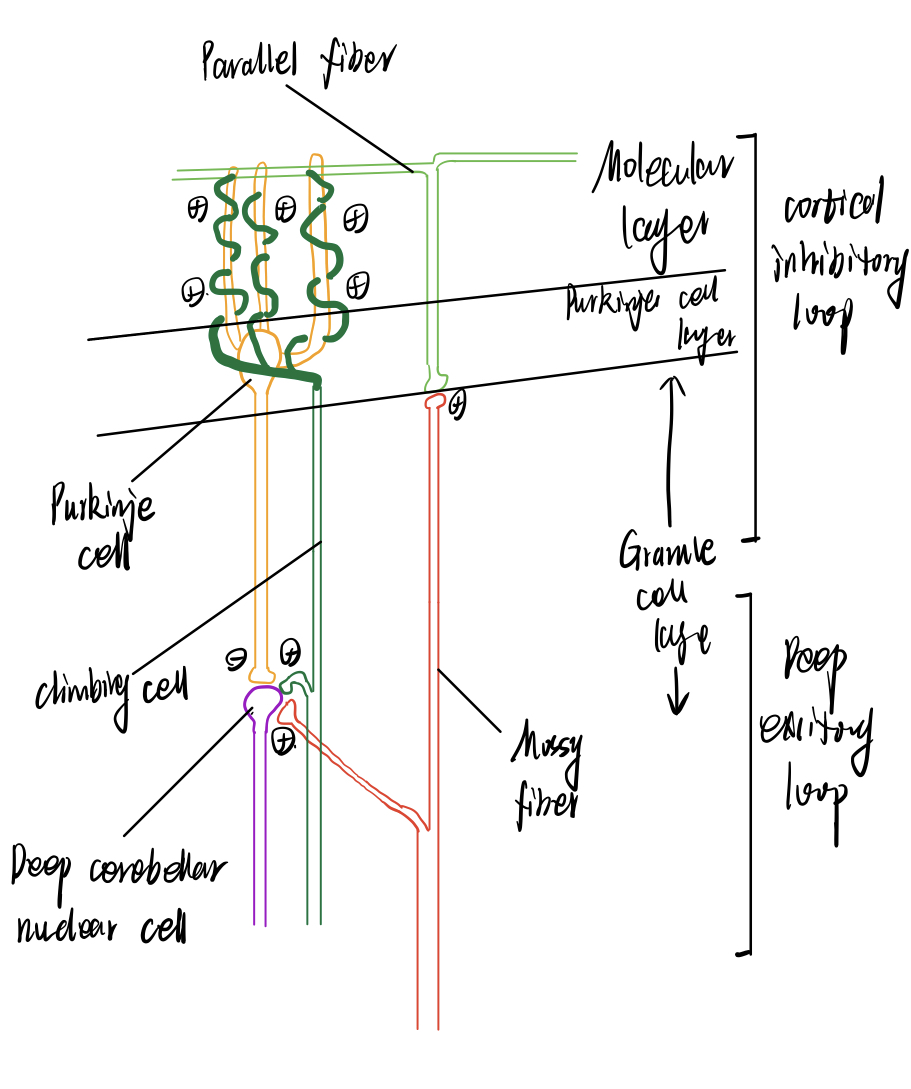 Parallel fiber
Molecular
layer
cortical
inhibitory
loop
Purkinje cell
layer
⊕
⊕
⊕
⊕
⊕
⊕
Purkinje
cell
Granule
cell
laye
⊖
⊕
climbing cell
⊕
Deep
exitory
loop
Mossy
fiber
Deep cerebellar
nuclear cell